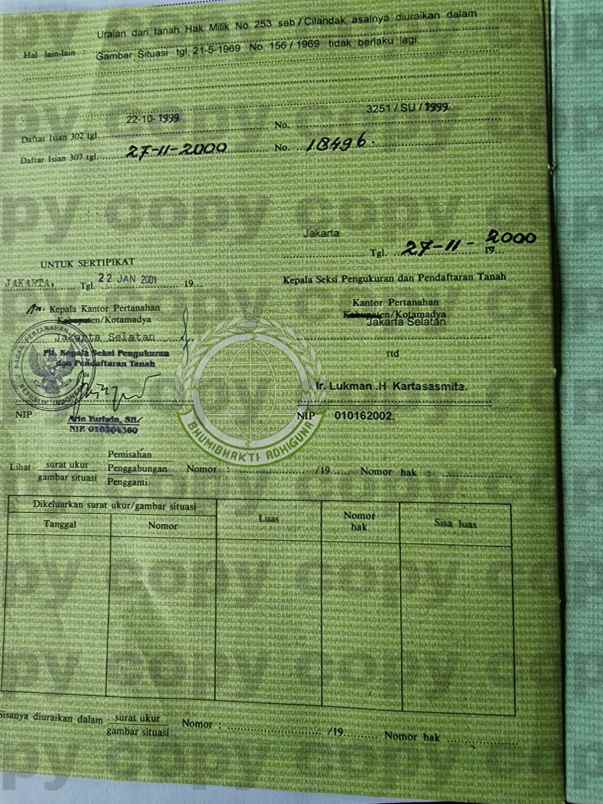 Uraian dari tanah Hak Milik No. 253 seb / Cilandak asalnya diuraikan dalam
Hal lain-lain : Gambar Situasi tgl 21-5-1969 No. 156 / 1969 tidak berlaku lagi
Daftar Isian 302 tgl. 22-10-1999 No. 3251 / SU / 1999
Daftar Isian 307 tgl. 27-11-2000 No. 18496.
Jakarta
Tgl. 27-11-2000 19...
UNTUK SERTIPIKAT
JAKARTA, Tgl. 22 JAN 2001 19...
Kepala Seksi Pengukuran dan Pendaftaran Tanah
An. Kepala Kantor Pertanahan
Kantor Pertanahan
Kabupaten/Kotamadya
Kabupaten/Kotamadya
Jakarta Selatan
Jakarta Selatan
Plt. Kepala Seksi Pengukuran
dan Pendaftaran Tanah
ttd
Ir. Lukman .H Kartasasmita.
NIP
NIP 010162002.
BHUMIBHAKTI ADHIGUNA
Lihat surat ukur
gambar situasi
Pemisahan
Penggabungan
Pengganti
Nomor : /19...... Nomor hak :
Dikeluarkan surat ukur/gambar situasi
Tanggal
Nomor
Luas
Nomor
hak
Sisa luas
Sisanya diuraikan dalam surat ukur
gambar situasi
Nomor : /19........ Nomor hak
copy copy copy copy